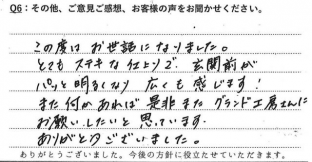 Q6：その他、ご意見ご感想、お客様の声をお聞かせください。
この度はお世話になりました。
とてもステキな仕上りで、玄関前が
パッと明るくなり 広くも感じます！
また何かあれば是非また グランド工房さんに
お願いしたいと思っています。
ありがとうございました。
ありがとうございました。今後の方針に役立たせていただきます。